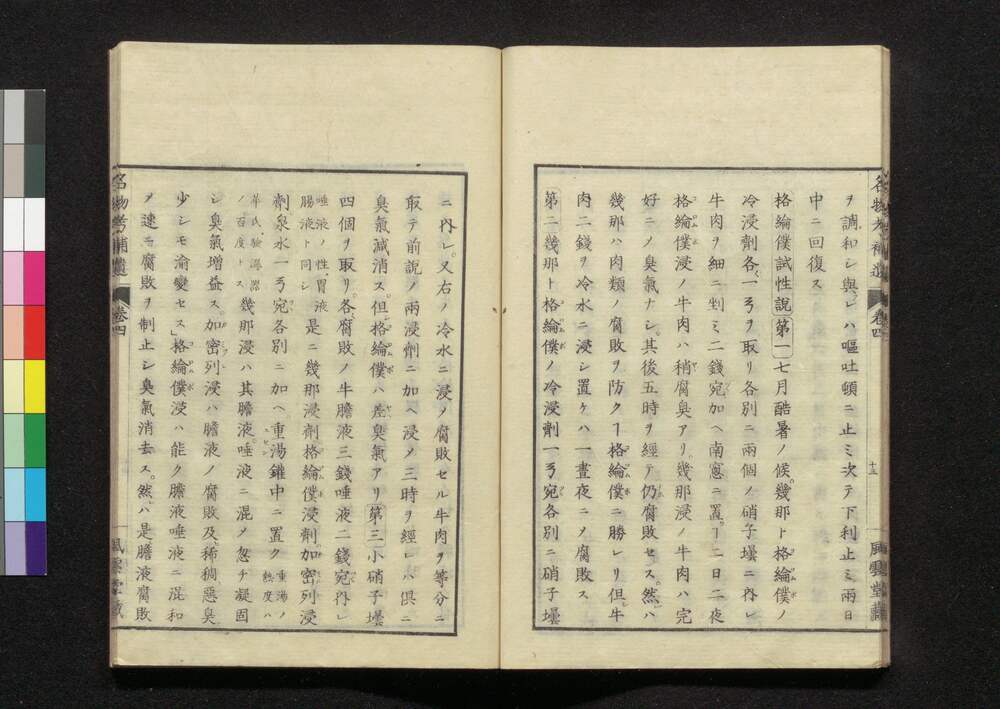 ヲ調和シ與レハ嘔吐頓ニ止ミ次テ下利止ミ兩日
中ニ回復ス
格綸僕試性說 第一 七月酷暑ノ候幾那ト格綸僕ノ
冷浸劑各一弓ヲ取リ各別ニ兩個ノ硝子壜ニ內レ
牛肉ヲ細ニ剉ミ二錢宛加ヘ南窓ニ置ヿ二日二夜
格綸僕浸ノ牛肉ハ稍腐臭アリ幾那浸ノ牛肉ハ完
好ニノ臭氣ナシ其後五時ヲ經テ仍腐敗セス然ハ
幾那ハ肉類ノ腐敗ヲ防クヿ格綸僕ニ勝レリ但牛
肉二錢ヲ冷水ニ浸シ置ケハ一晝夜ニノ腐敗ス
第二 幾那ト格綸僕ノ冷浸劑一弓宛各別ニ硝子壜
名物考補遺 卷四 十三 風雲堂藏
ニ內レ又右ノ冷水ニ浸ノ腐敗セル牛肉ヲ等分ニ
取テ前說ノ兩浸劑ニ加ヘ浸ノ三時ヲ經レハ俱ニ
臭氣減消ス但格綸僕ハ差臭氣アリ 第三 小硝子壜
四個ヲ取リ各腐敗ノ牛膽液三錢唾液二錢宛內レ
唾液ノ性胃液
腸液ト同シ
是ニ幾那浸劑格綸僕浸劑加密列浸
劑泉水一弓宛各別ニ加ヘ重湯鑵中ニ置ク
重湯ノ
熱度ハ
華氏驗濕器
ノ百度トス
幾那浸ハ其膽液唾液ニ混ノ忽チ凝固
シ臭氣增益ス加密列浸ハ膽液ノ腐敗及稀稠惡臭
少シモ渝變セス格綸僕浸ハ能ク膽液唾液ニ混和
ノ速ニ腐敗ヲ制止シ臭氣消去ス然ハ是膽液腐敗
名物考補遺 卷四 風雲堂藏